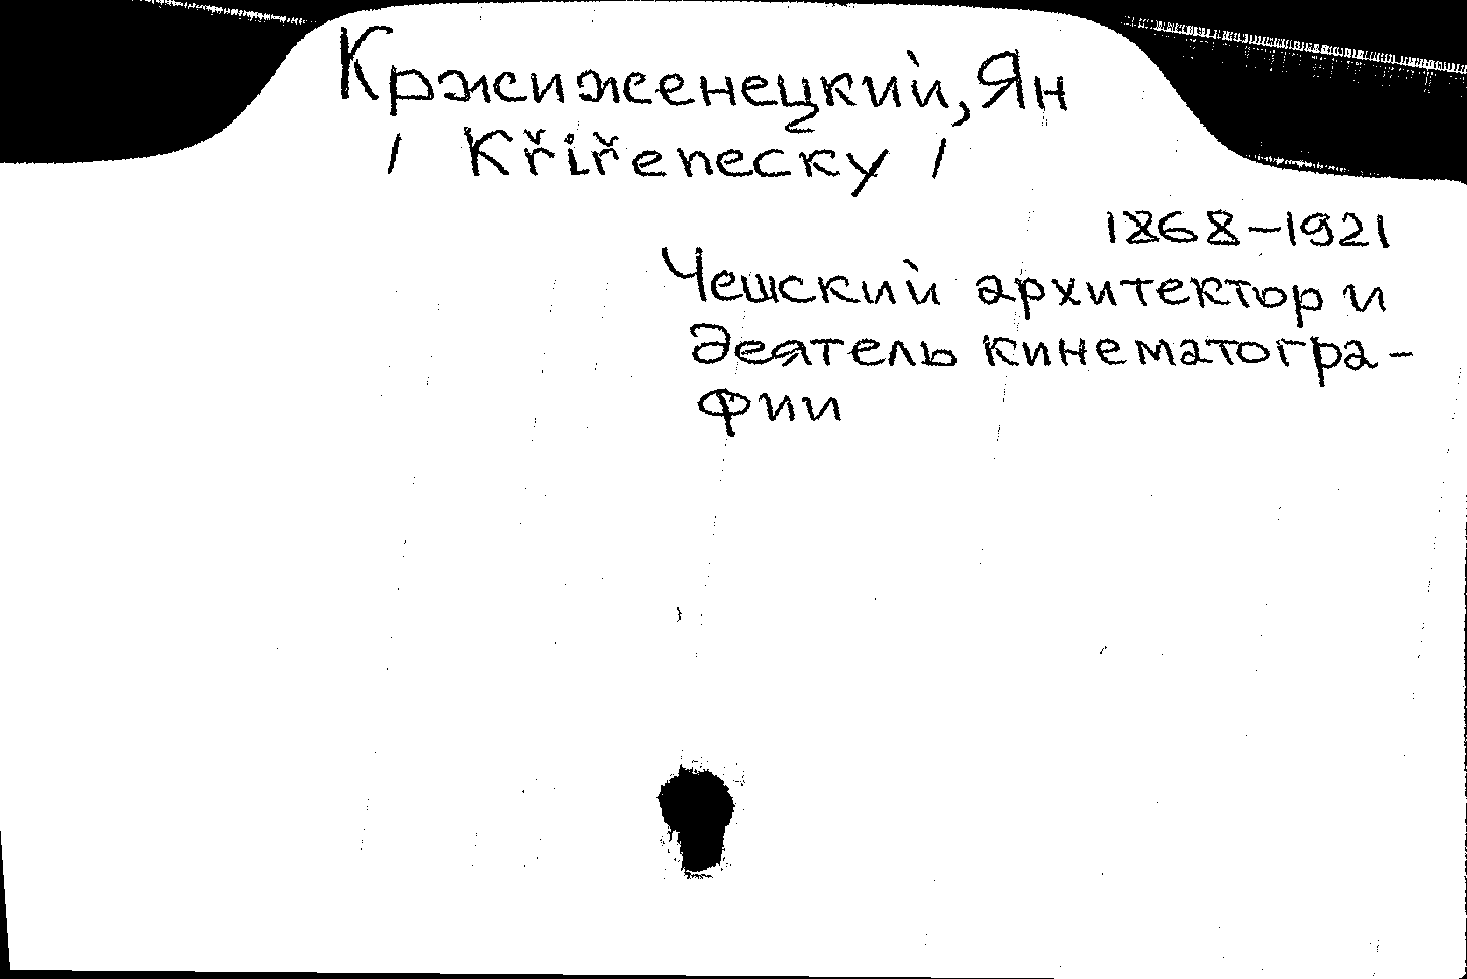 Кржиженецкий, Ян
/ Křiřenecky /
1868-1921
Чешский архитектор и
деятель кинематогра-
фии